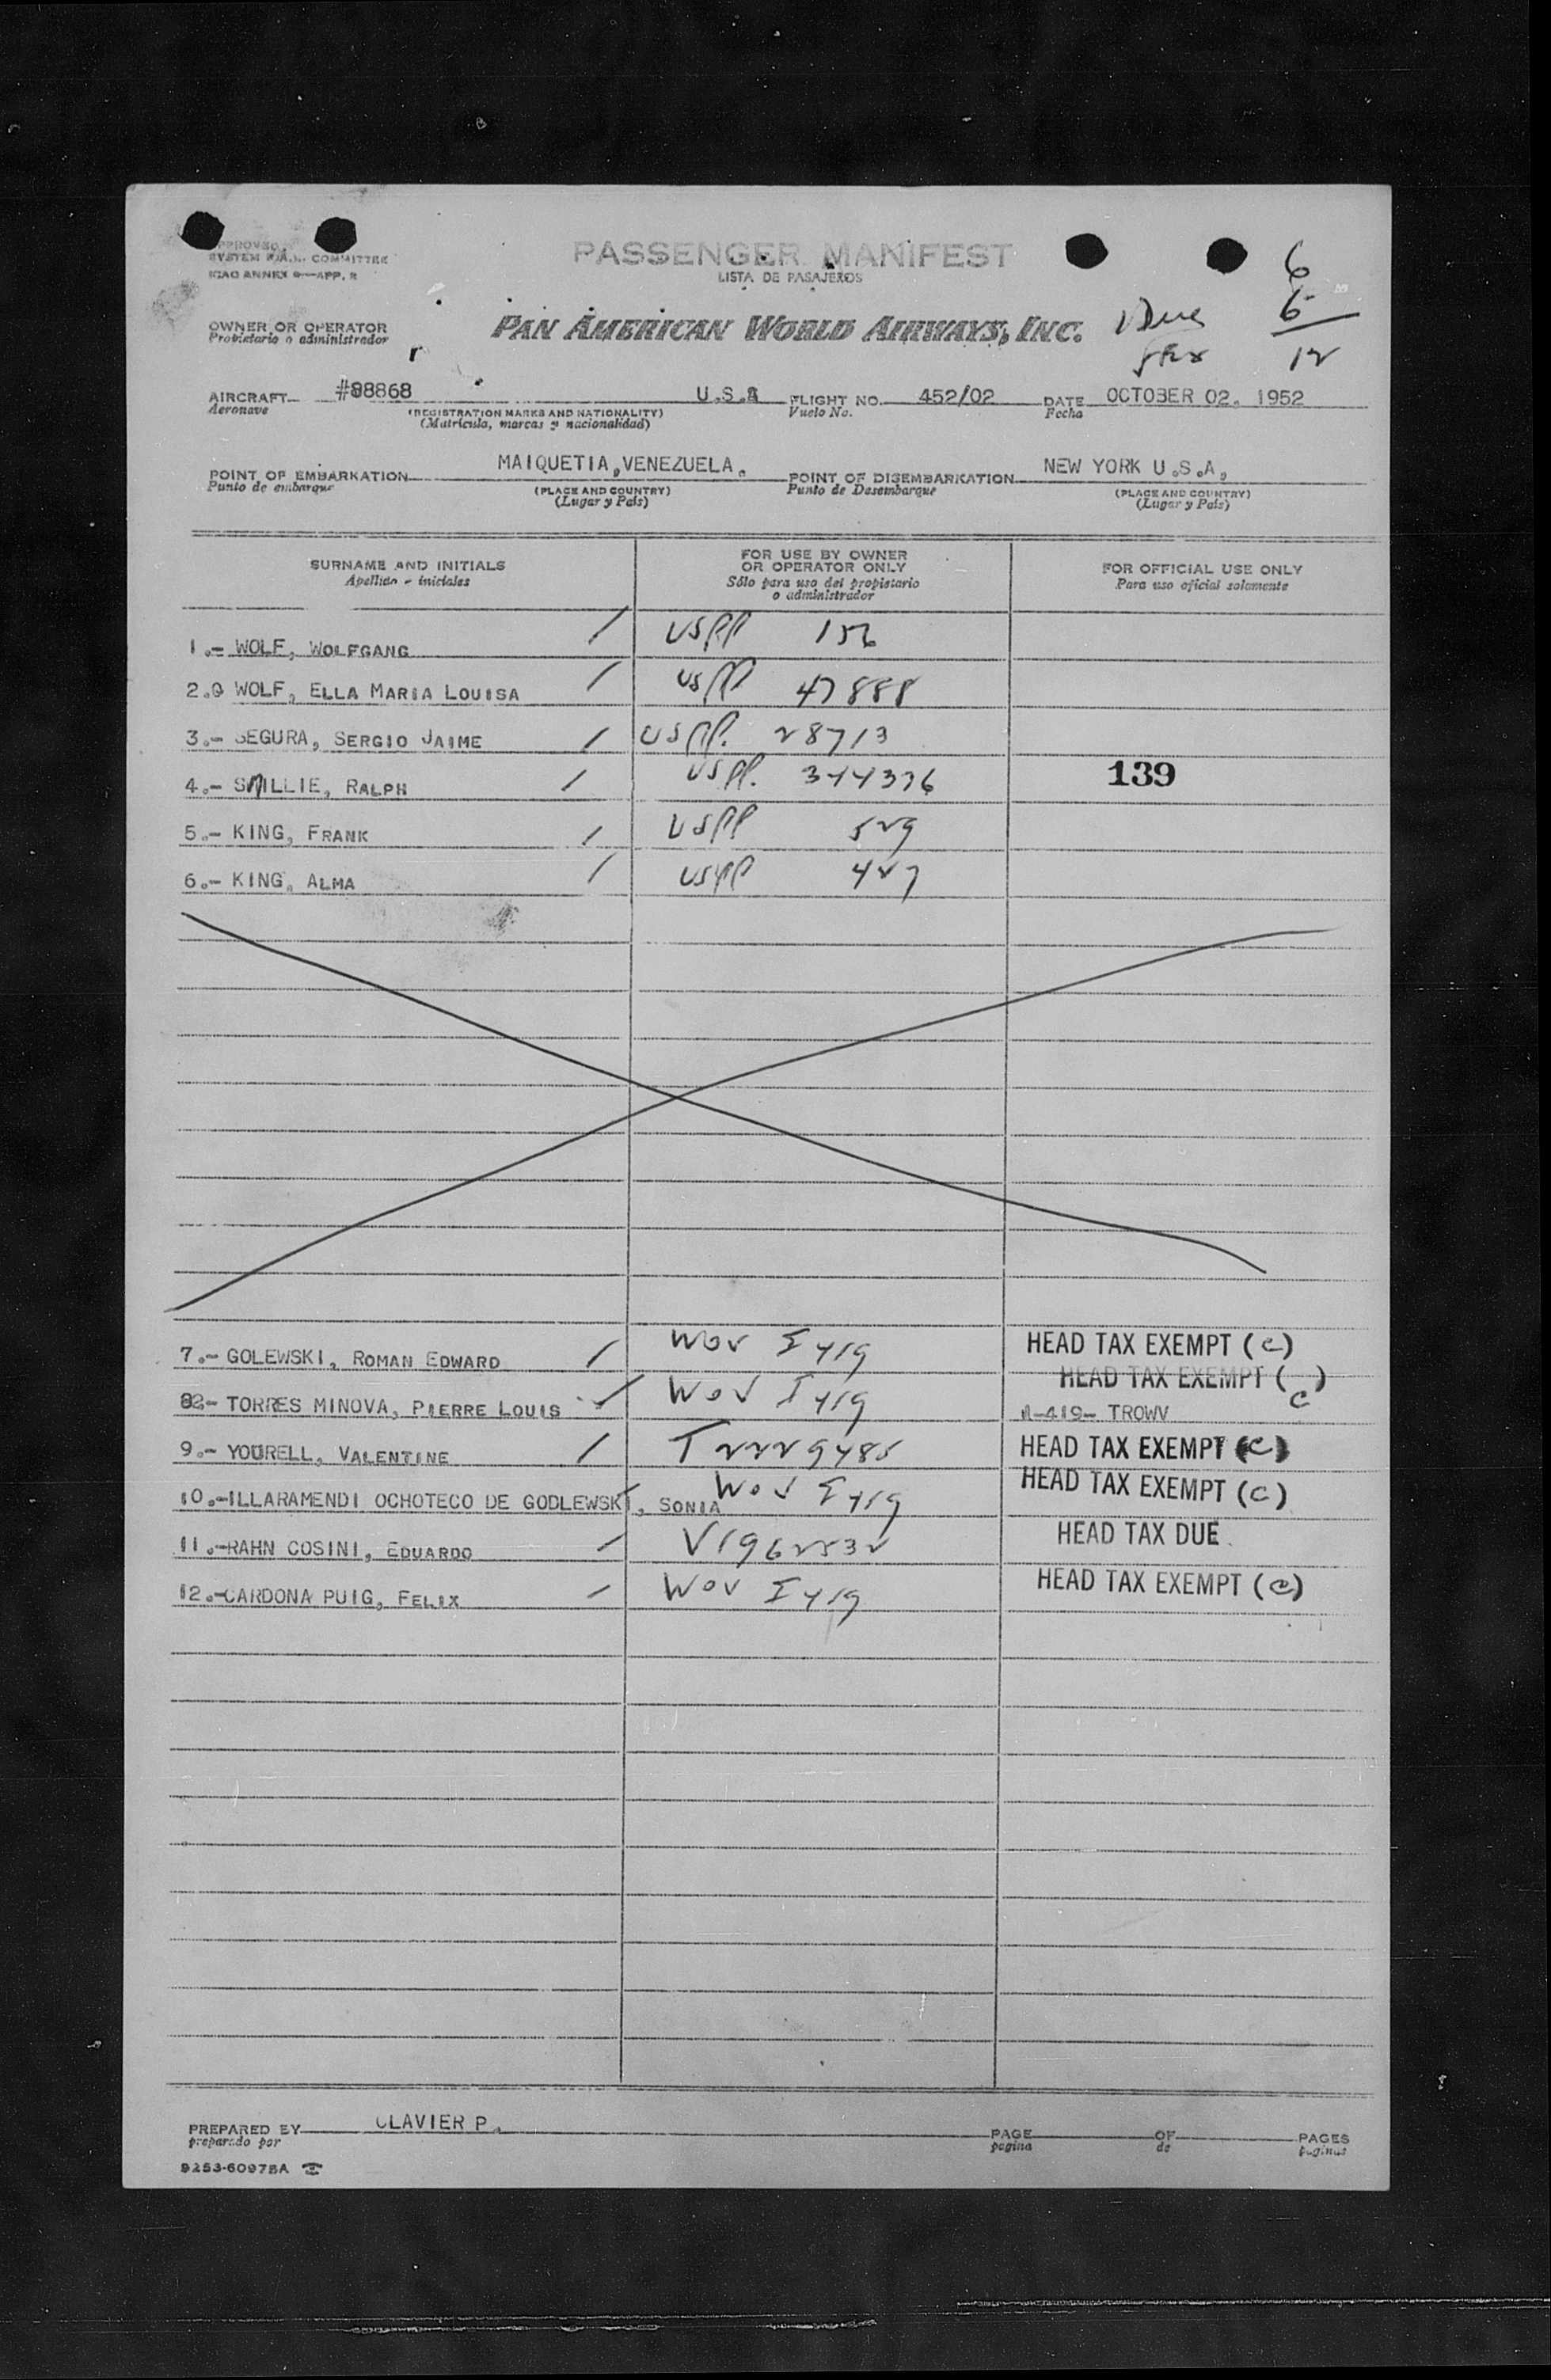 APPROVED
SYSTEM F.A.L. COMMITTEE
ICAO ANNEX 9—APP. 2
PASSENGER MANIFEST
LISTA DE PASAJEROS
6
6
12
1 Due
OWNER OR OPERATOR
Propietario o administrador
PAN AMERICAN WORLD AIRWAYS, INC.
AIRCRAFT #88868 U.S.A FLIGHT NO. 452/02 DATE OCTOBER 02, 1952
Aeronave (REGISTRATION MARKS AND NATIONALITY) Vuelo No. Fecha
(Matrícula, marcas y nacionalidad)
POINT OF EMBARKATION MAIQUETIA, VENEZUELA. POINT OF DISEMBARKATION NEW YORK U.S.A,
Punto de embarque (PLACE AND COUNTRY) Punto de Desembarque (PLACE AND COUNTRY)
(Lugar y País) (Lugar y País)
SURNAME AND INITIALS FOR USE BY OWNER OR OPERATOR ONLY FOR OFFICIAL USE ONLY
Apellido - iniciales Sólo para uso del propietario o administrador Para uso oficial solamente
1.- WOLF, WOLFGANG / USPP 156
2. WOLF, ELLA MARIA LOUISA / USPP 47888
3.- SEGURA, SERGIO JAIME / USPP. 28713
4.- SMILLIE, RALPH / USPP. 344336 139
5.- KING, FRANK / USPP 529
6.- KING, ALMA / USPP 427
7.- GOLEWSKI, ROMAN EDWARD / WOV I 419 HEAD TAX EXEMPT (C)
HEAD TAX EXEMPT (C)
8- TORRES MINOVA, PIERRE LOUIS / WOV I 419 I-419- TROWV
9.- YOURELL, VALENTINE / T2229485 HEAD TAX EXEMPT (C)
10.-ILLARAMENDI OCHOTECO DE GODLEWSKI, SONIA WOV I 419 HEAD TAX EXEMPT (C)
11.-RAHN COSINI, EDUARDO / V1962532 HEAD TAX DUE
12.-CARDONA PUIG, FELIX / WOV I 419 HEAD TAX EXEMPT (C)
PREPARED BY CLAVIER P. PAGE OF PAGES
preparado por pagina de paginas
9253-6097BA